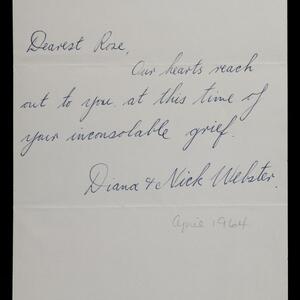 Dearest Rose,
Our hearts reach
out to you at this time of
your inconsolable grief.
Diana & Nick Webster.
April 1964